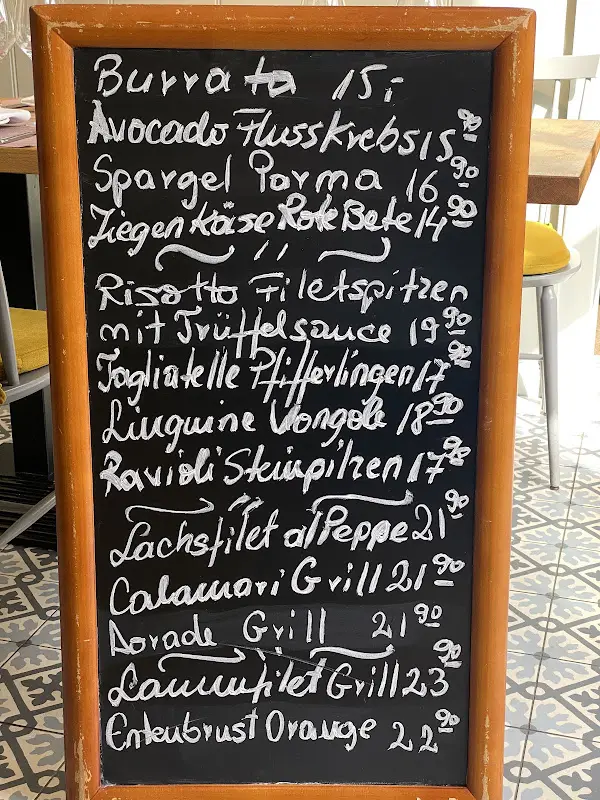 Burrata 15,-
Avocado Flusskrebs 15 90
Spargel Parma 16 90
Ziegenkäse Rote Bete 14 90
Risotto Filetspitzen
mit Trüffelsauce 19 90
Tagliatelle Pfifferlingen 17 90
Linguine Vongole 18 90
Ravioli Steinpilzen 17 90
Lachsfilet al Peppe 21 90
Calamari Grill 21 90
Dorade Grill 21 90
Lammfilet Grill 23 90
Entenbrust Orange 22 90